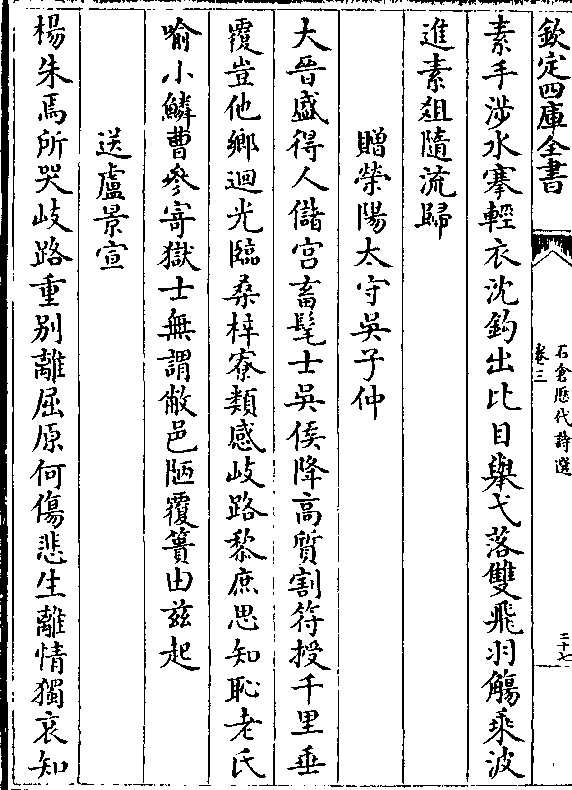 欽定四庫全書
石倉歷代詩選
卷三
二十七
素手涉水搴輕衣沈鈎出比目舉弋落雙飛羽觴乘波
進素俎隨流歸
贈榮陽太守吳子仲
大晉盛得人儲宫畜髦士吳侯降高質割符授千里垂
覆豈他鄉迴光臨桑梓寮類感岐路黎庶思知恥老氏
喻小鱗曹參寄獄士無謂敝邑陋覆簣由兹起
送盧景宣
楊朱焉所哭岐路重别離屈原何傷悲生離情獨哀知